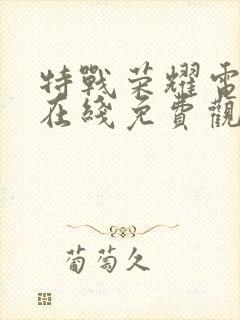 特戰榮耀電
在綫免費觀
葡萄久